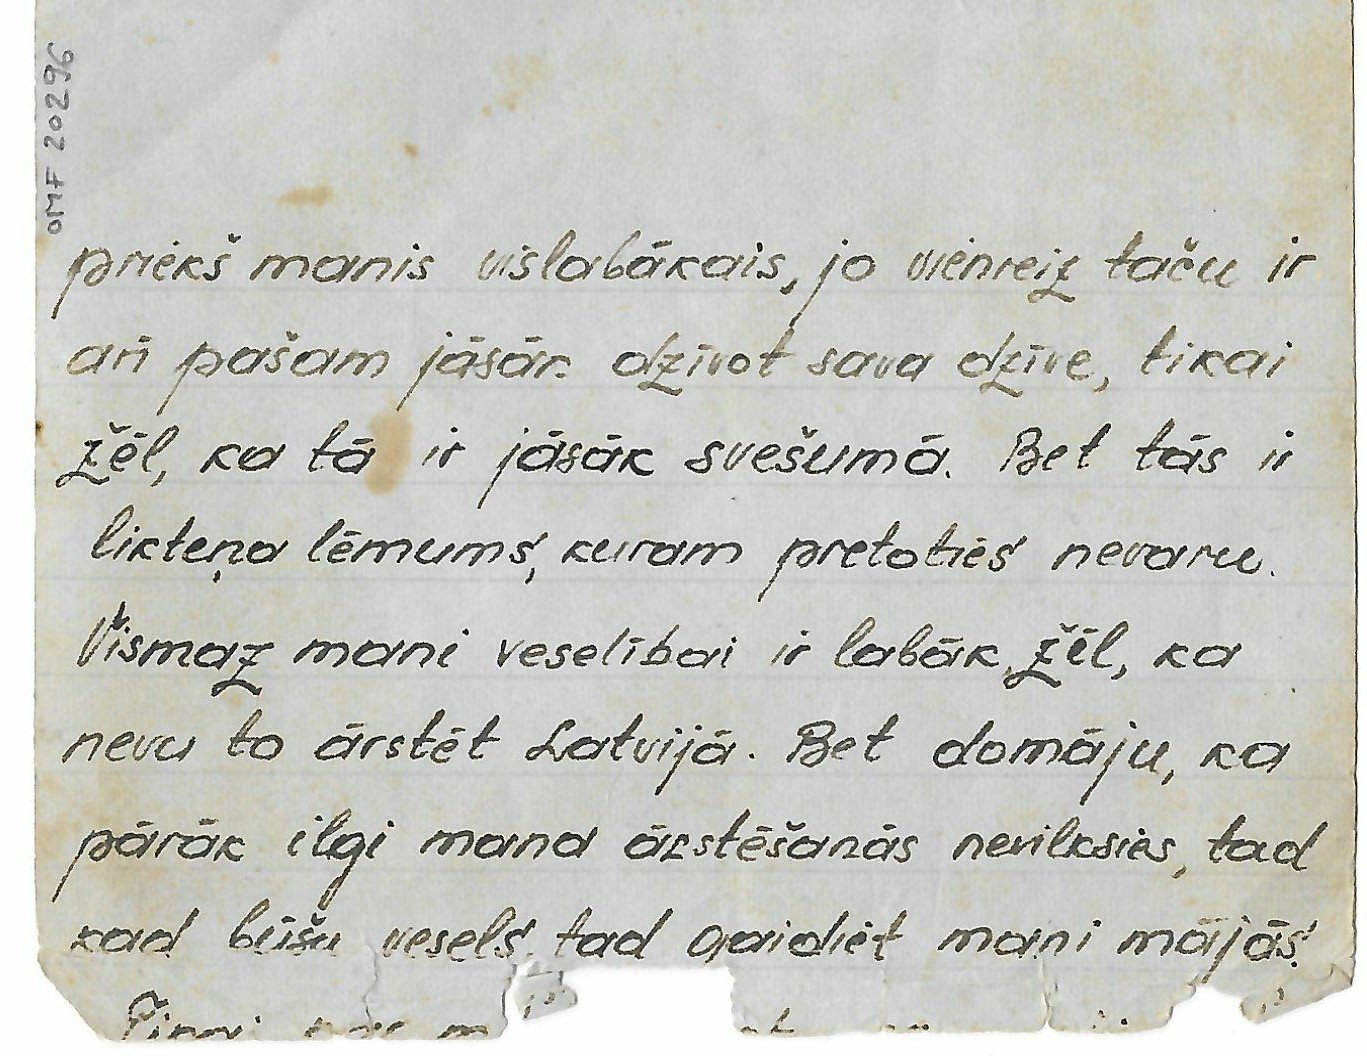 OMF 20296
priekš manis vislabākais, jo vienreiz taču ir
arī pašam jāsāk dzīvot sava dzīve, tikai
žēl, ka tā ir jāsāk svešumā. Bet tās ir
likteņa lēmums, kuram pretoties nevaru.
Vismaz mani veselībai ir labāk, žēl, ka
nevu to ārstēt Latvijā. Bet domāju, ka
pārāk ilgi mana ārstēšanās nevilksies, tad
kad būšu vesels, tad gaidiet mani mājās.